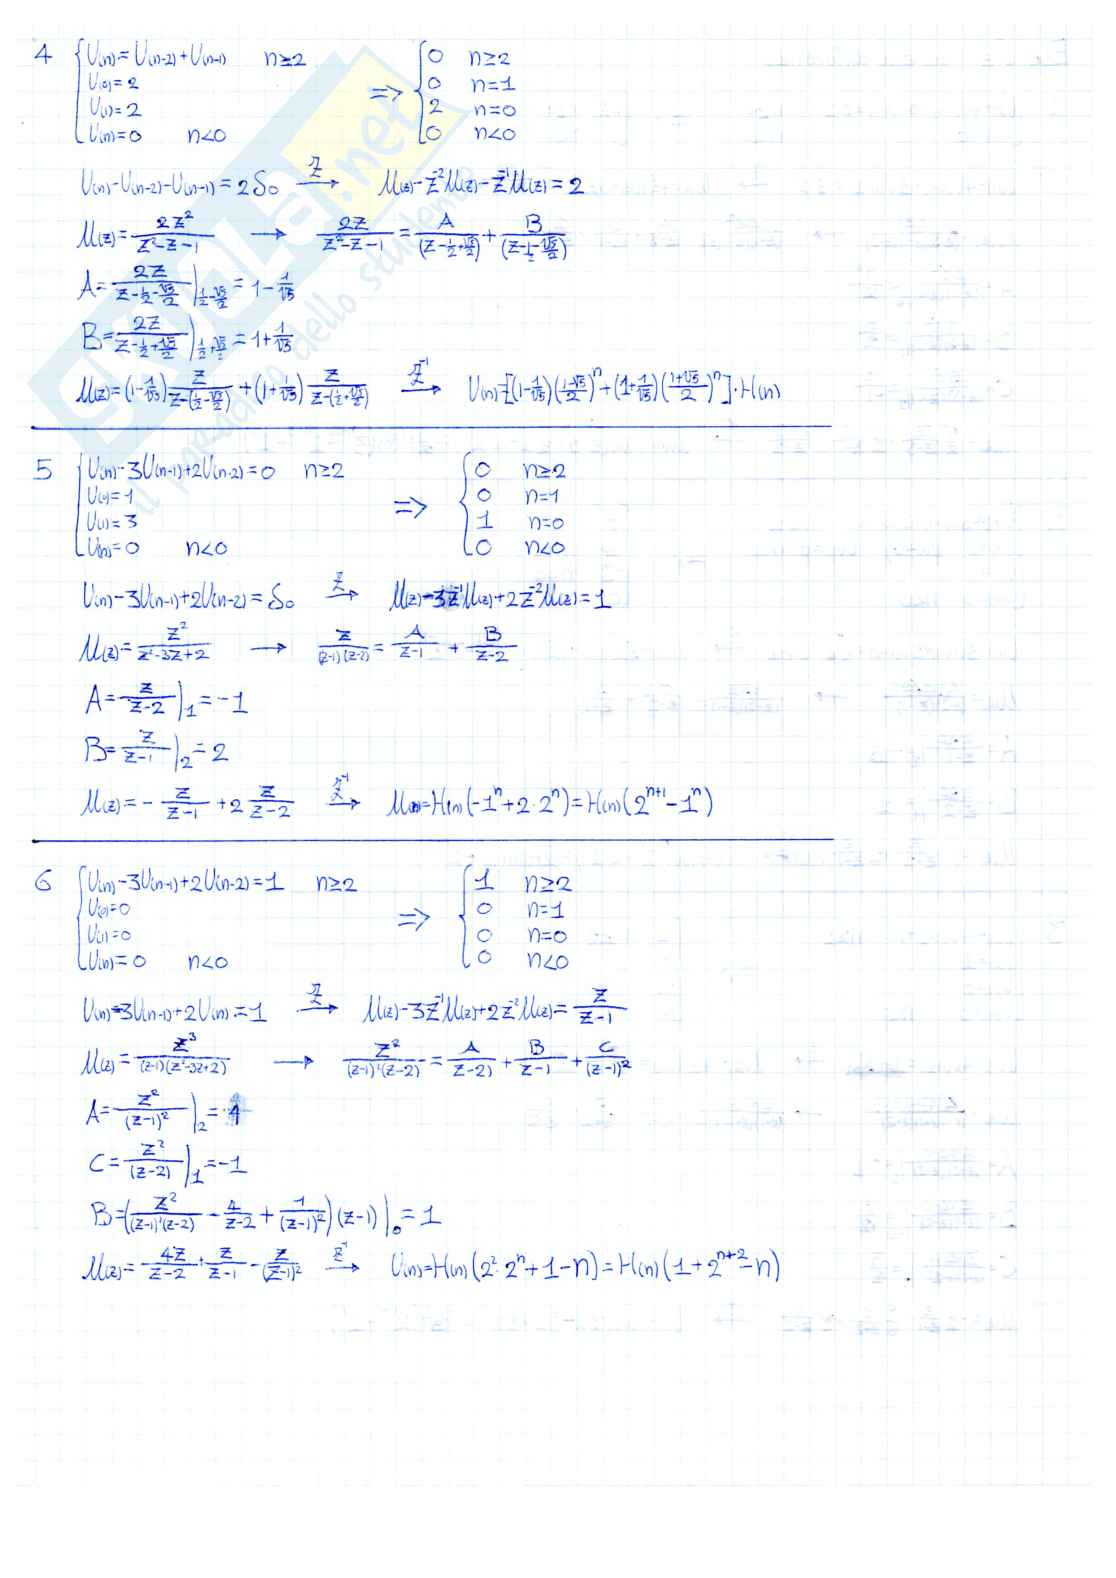 4 { U(n) = U(n-2) + U(n-1)   n≥2   { 0   n≥2
U(0) = 2   =>   0   n=1
U(1) = 2   2   n=0
U(n) = 0   n<0   0   n<0
U(n) - U(n-2) - U(n-1) = 2δ₀ —Z→ U(z) - z⁻²U(z) - z⁻¹U(z) = 2
U(z) = 2z²/(z²-z-1) → 2z/(z²-z-1) = A/(z-1/2+√5/2) + B/(z-1/2-√5/2)
A = 2z/(z-1/2-√5/2) |_{1/2-√5/2} = 1 - 1/√5
B = 2z/(z-1/2+√5/2) |_{1/2+√5/2} = 1 + 1/√5
U(z) = (1-1/√5) z/(z-(1/2-√5/2)) + (1+1/√5) z/(z-(1/2+√5/2)) —Z⁻¹→ U(n) = [(1-1/√5)((1-√5)/2)ⁿ + (1+1/√5)((1+√5)/2)ⁿ]·H(n)
5 { U(n) - 3U(n-1) + 2U(n-2) = 0   n≥2   { 0   n≥2
U(0) = 1   =>   0   n=1
U(1) = 3   1   n=0
U(n) = 0   n<0   0   n<0
U(n) - 3U(n-1) + 2U(n-2) = δ₀ —Z→ U(z) - 3z⁻¹U(z) + 2z⁻²U(z) = 1
U(z) = z²/(z²-3z+2) → z/((z-1)(z-2)) = A/(z-1) + B/(z-2)
A = z/(z-2) |₁ = -1
B = z/(z-1) |₂ = 2
U(z) = - z/(z-1) + 2 z/(z-2) —Z⁻¹→ U(n) = H(n)(-1ⁿ + 2·2ⁿ) = H(n)(2ⁿ⁺¹ - 1ⁿ)
6 { U(n) - 3U(n-1) + 2U(n-2) = 1   n≥2   { 1   n≥2
U(0) = 0   =>   0   n=1
U(1) = 0   0   n=0
U(n) = 0   n<0   0   n<0
U(n) - 3U(n-1) + 2U(n) = 1 —Z→ U(z) - 3z⁻¹U(z) + 2z⁻²U(z) = z/(z-1)
U(z) = z³/((z-1)(z²-3z+2)) → z²/((z-1)²(z-2)) = A/(z-2) + B/(z-1) + C/(z-1)²
A = z²/(z-1)² |₂ = 4
C = z²/(z-2) |₁ = -1
B = (z²/((z-1)²(z-2)) - 4/(z-2) + 1/(z-1)²)(z-1) |₀ = 1
U(z) = 4z/(z-2) + z/(z-1) - z/(z-1)² —Z⁻¹→ U(n) = H(n)(2²·2ⁿ + 1 - n) = H(n)(1 + 2ⁿ⁺² - n)
skuola.net
il paradiso dello studente